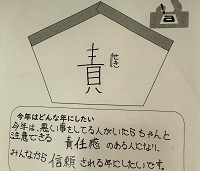 責
今年はどんな年にしたい
今年は、悪い事をしてる人がいたらちゃんと
注意できる 責任感 のある人になり、
みんなから 信頼 される年にしたいです。